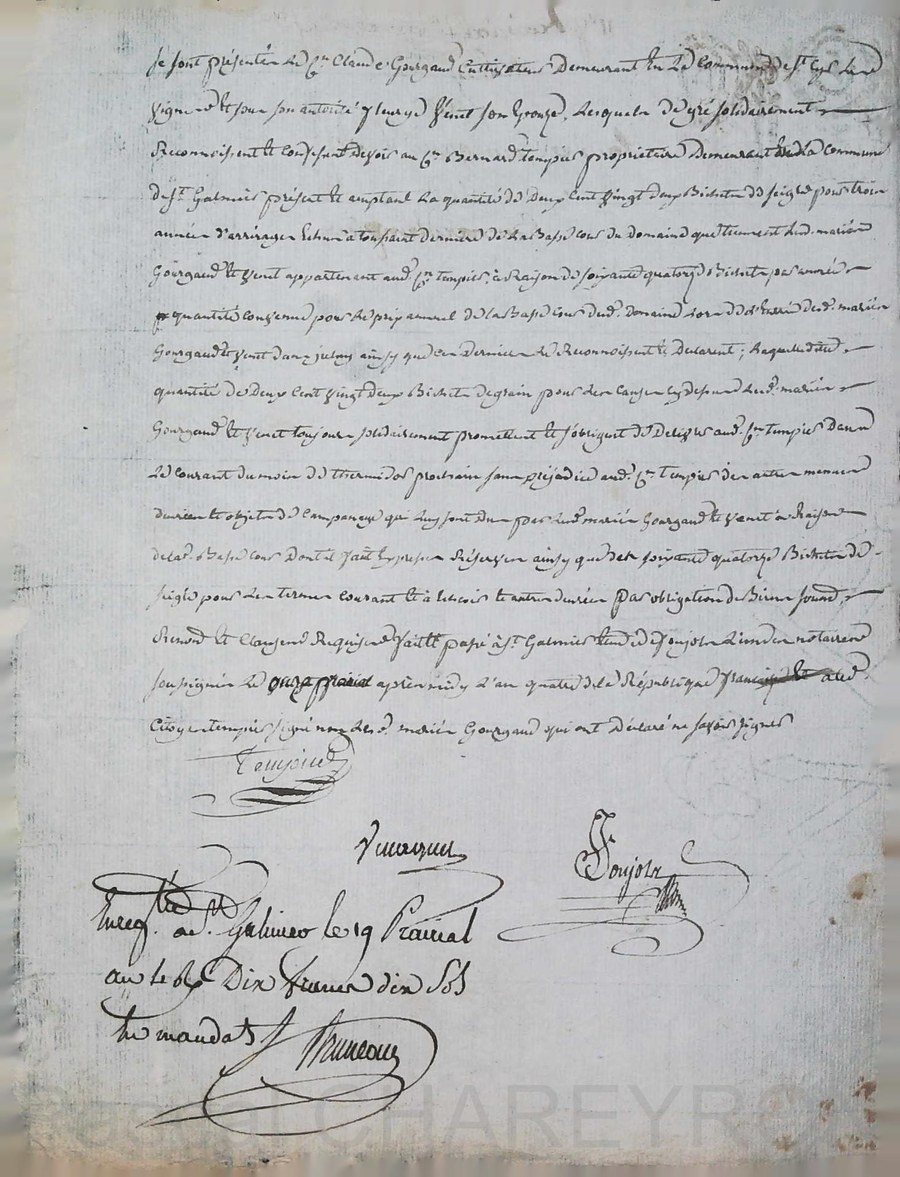 Se sont présentés le Cn Claude Gourgaud Cultivateur Demeurant En la Commune de St Cyr les
vignes Et sous son autorité fleurye Venet son Epouze, Lesquels de gré solidairement
Reconnoissent Et Confessent devoir au Cn Bernard tempier propriétaire Demeurant En la commune
de St Galmier présent Et acceptant La quantité de Deux Cent vingt deux Bichets de seigle pour trois
années d'arrérages Echus a toussaint dernière de la Basse cour du domaine que tiennent Lesd. mariés
Gourgaud Et Venet appartenant aud. Cn tempier, à Raison de soixante quatorze Bichets par année
quantité Convenue pour le prix annuel de la Basse Cour dud. Domaine Lors de l'Entrée desd. mariés
Gourgaud Et Venet dans jceluy ainsy que ces Derniers le Reconnoissent Et Declarent; Laquelle dite
quantité de Deux Cent vingt Deux Bichets de grain pour les Causes cy dessus Lesd. mariés
Gourgaud Et Venet toujours solidairement promettent Et s'obligent de Delivrer aud. Cn tempier Dans
Le courant du mois de thermidor prochain sans préjudice aud. Cn tempier des autres menues
denrées Et objets de Campagne qui luy sont dus par lesd. mariés Gourgaud Et Venet à Raison
de lad. Basse Cour Dont il fait Expresse Réserve ainsy que des soixante quatorze Bichets de
seigle pour les termes courant Et à Echoir Et autres denrées par obligation de Biens soumis
Renonc. Et Clauses Requises fait Et passé à St Galmier Etude de Soujols L'un des notaires
soussignés Le onze prairial après midy L'an quatre de la République française Et a led.
Citoyen tempier signé non Lesd. mariés Gourgaud qui ont Déclaré ne savoir signer
Soujols
Enregtré à St Galmier le 19 Prairial
an 4e Rçu Dix francs dix Sols
En mandats
Bruneau
Pascal CHAREYRON